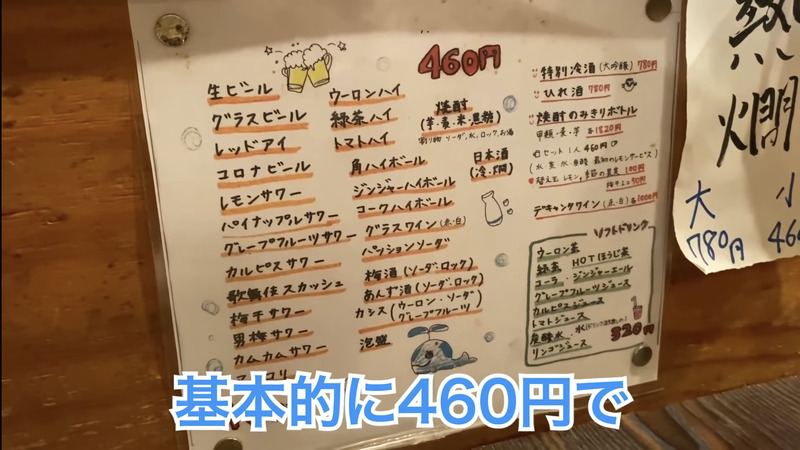 460円
生ビール
グラスビール
レッドアイ
コロナビール
レモンサワー
パイナップルサワー
グレープフルーツサワー
カルピスサワー
歌舞伎スカッシュ
梅干サワー
男梅サワー
カムカムサワー
ウーロンハイ
緑茶ハイ
トマトハイ
角ハイボール
ジンジャーハイボール
コークハイボール
グラスワイン(赤・白)
パッションソーダ
梅酒(ソーダ・ロック)
あんず酒(ソーダ・ロック)
カシス(ウーロン・ソーダ)
グレープフルーツ
泡盛
焼酎
(芋・麦・米・黒糖)
割り物 ソーダ、水、ロック、お湯
日本酒
(冷・燗)
特別冷酒(大吟醸) 780円
ひれ酒 780円
焼酎のみきりボトル
甲類・麦・芋 各1820円
セット 1人 460円
替え玉 レモン、季節の果実 100円
梅干し 50円
デキャンタワイン(赤・白)各1000円
ソフトドリンク
ウーロン茶
緑茶 HOTほうじ茶
コーラ・ジンジャーエール
グレープフルーツジュース
カルピスジュース
トマトジュース
炭酸水・水
リンゴジュース
320円
熱燗
大
780円
小
460
基本的に460円で